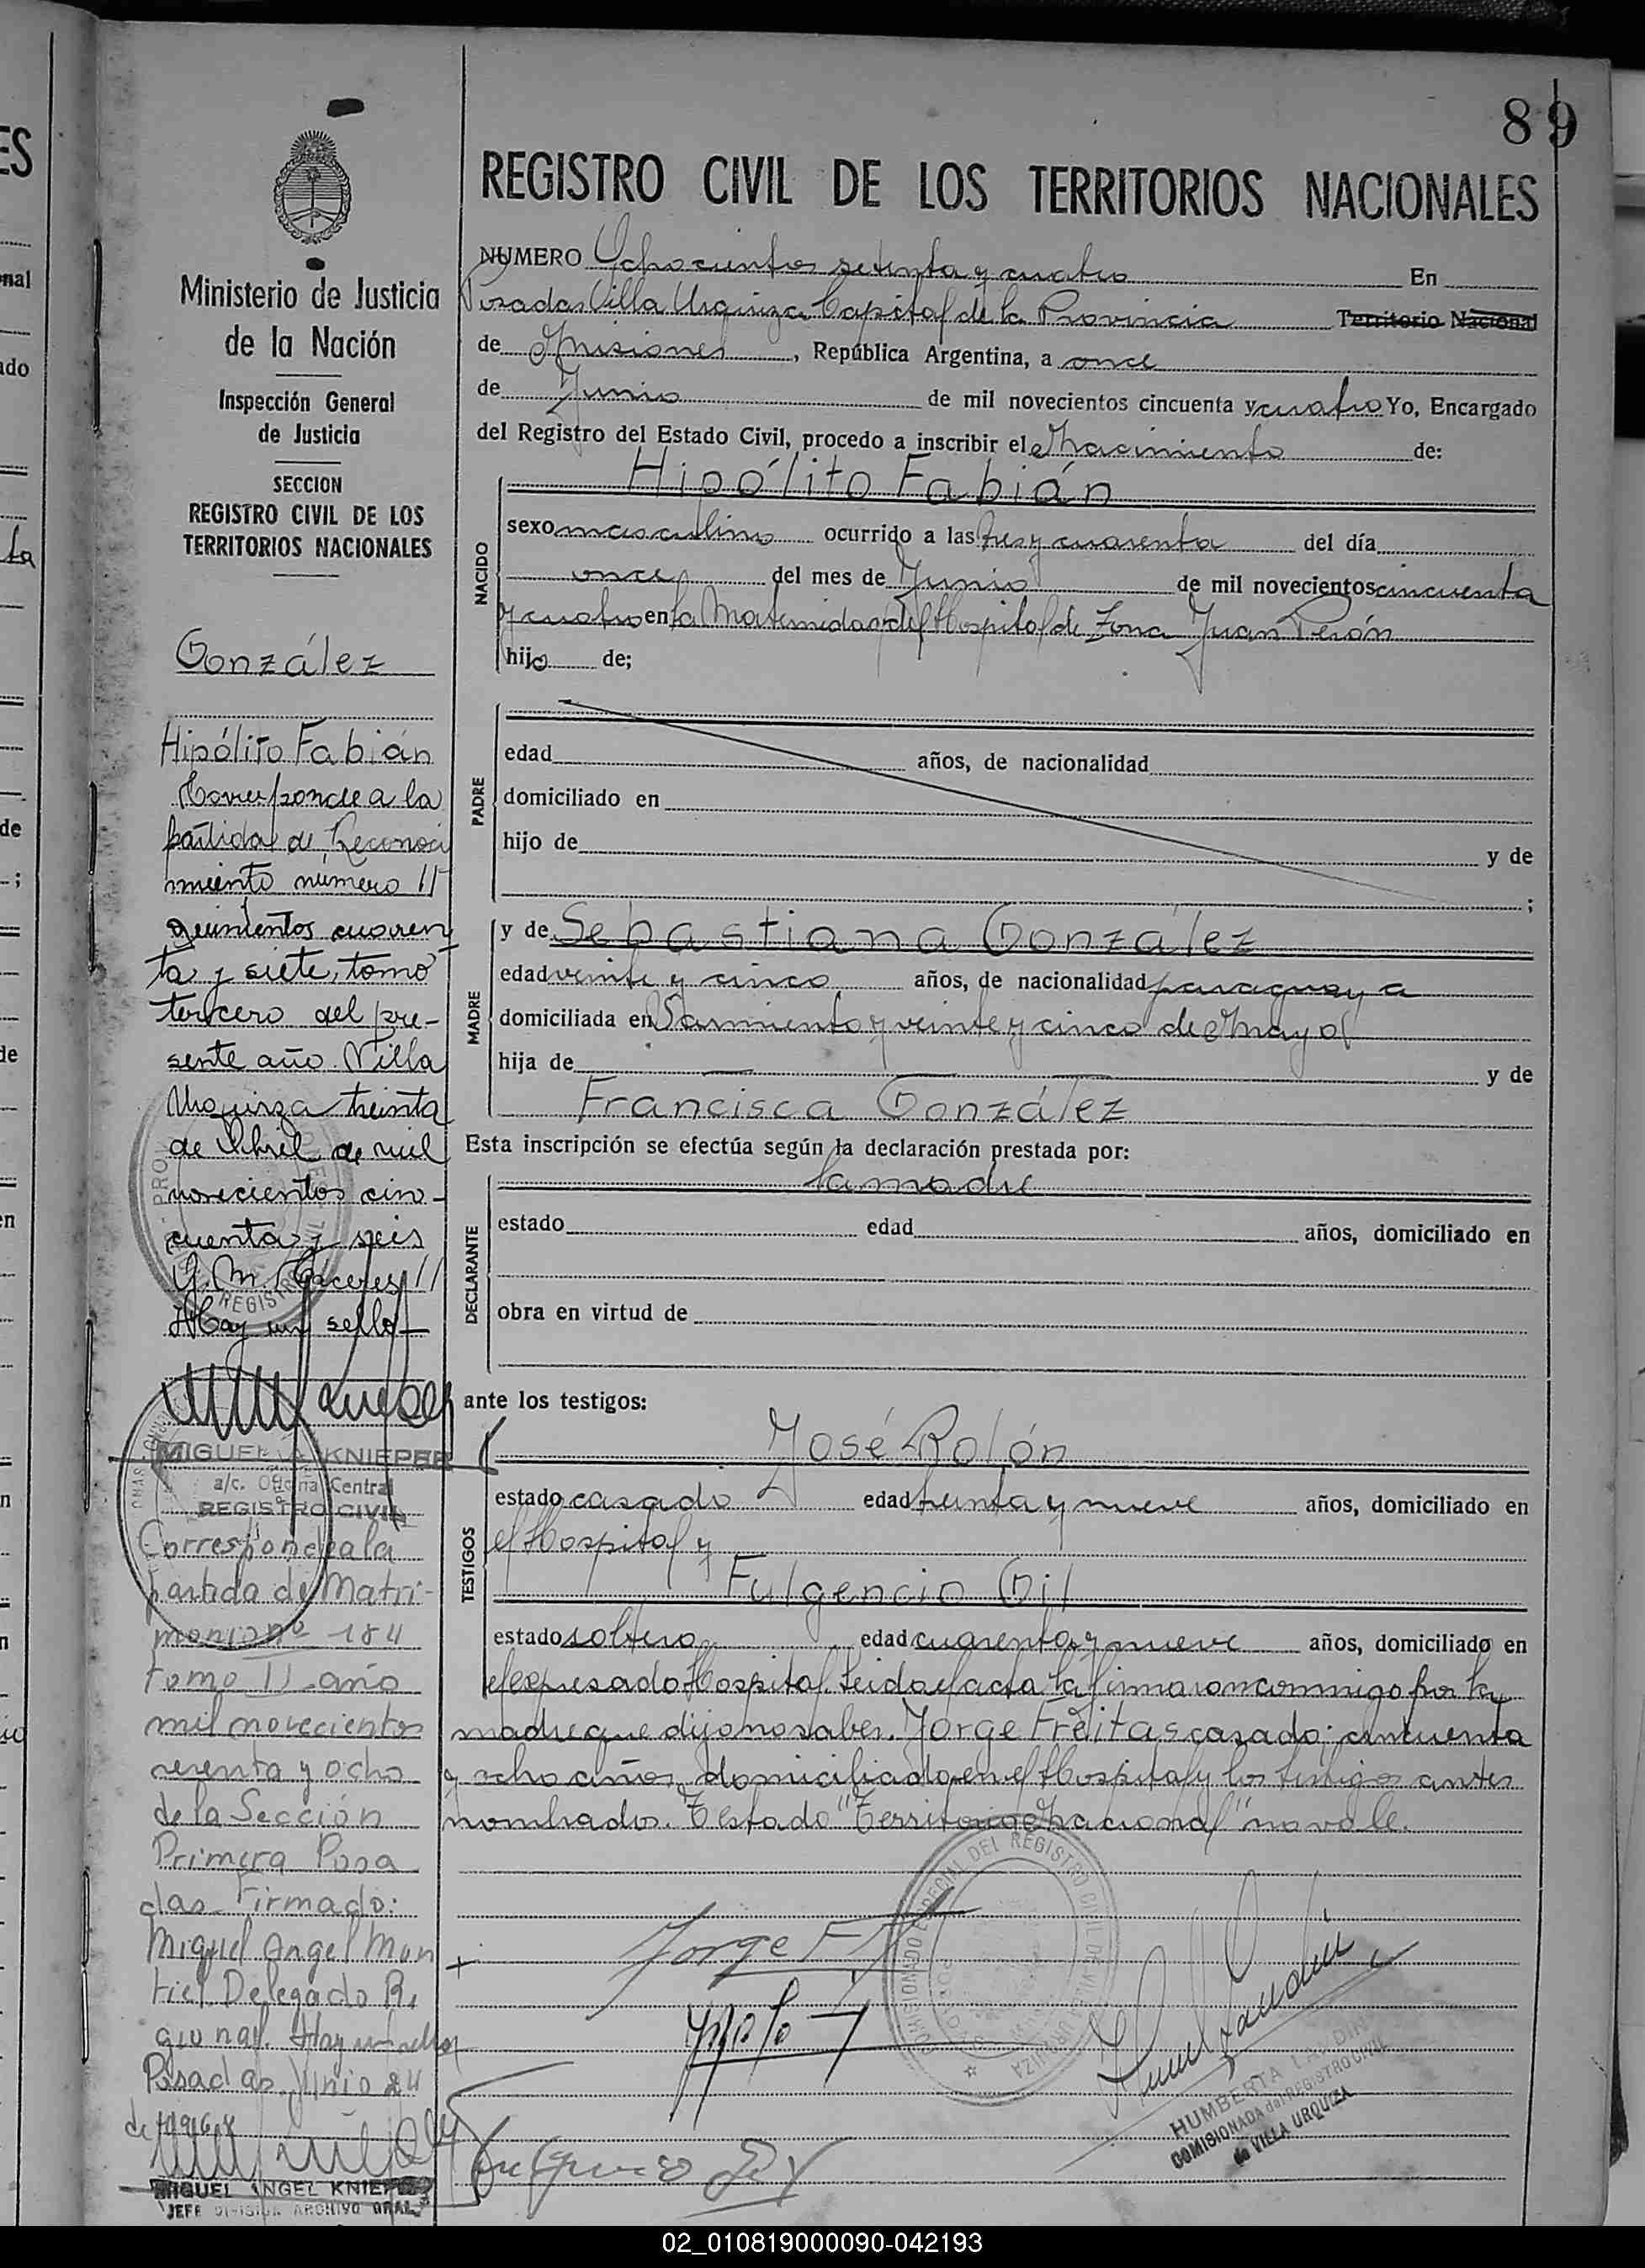 89
REGISTRO CIVIL DE LOS TERRITORIOS NACIONALES
Ministerio de Justicia
de la Nación
Inspección General
de Justicia
SECCION
REGISTRO CIVIL DE LOS
TERRITORIOS NACIONALES
González
Hipólito Fabián
Corresponde a la
partida de Reconoci
miento numero //
quinientos cuaren
ta y siete, tomo
tercero del pre-
sente año. Villa
Urquiza treinta
de Abril de mil
novecientos cin-
cuenta y seis
G. M. Caceres //
Hay un sello
MIGUEL A. KNIEPER
a/c. Oficina Central
REGISTRO CIVIL
Corresponde a la
partida de Matri-
monio nº 184
tomo II año
mil novecientos
sesenta y ocho
de la Sección
Primera Posa
das Firmado:
Miguel Angel Mon
tiel Delegado Re
gional. Hay un sello
Posadas Junio 24
de 1968
MIGUEL ANGEL KNIEPER
JEFE DIVISION ARCHIVO GRAL.
NUMERO Ochocientos setenta y cuatro En
Posadas Villa Urquiza Capital de la Provincia Territorio Nacional
de Misiones, República Argentina, a once
de Junio de mil novecientos cincuenta y cuatro Yo, Encargado
del Registro del Estado Civil, procedo a inscribir el Nacimiento de:
NACIDO
Hipólito Fabián
sexo masculino ocurrido a las tres y cuarenta del día
once del mes de Junio de mil novecientos cincuenta
y cuatro en la Maternidad del Hospital de Zona Juan Perón
hijo de;
PADRE
edad años, de nacionalidad
domiciliado en
hijo de y de
;
MADRE
y de Sebastiana González
edad veinte y cinco años, de nacionalidad paraguaya
domiciliada en Sarmiento y veinte y cinco de Mayo
hija de y de
Francisca González
Esta inscripción se efectúa según la declaración prestada por:
DECLARANTE
la madre
estado edad años, domiciliado en
obra en virtud de
ante los testigos:
TESTIGOS
José Rolón
estado casado edad treinta y nueve años, domiciliado en
el Hospital y
Fulgencio Gil
estado soltero edad cuarenta y nueve años, domiciliado en
el expresado Hospital. Leida el acta la firmaron conmigo por la
madre que dijo no saber. Jorge Freitas casado cincuenta
y ocho años, domiciliado en el Hospital y los testigos antes
nombrados. Testado "Territorio Nacional" no vale.
COMISIONADO ESPECIAL DEL REGISTRO CIVIL DE VILLA URQUIZA
Jorge F
Fulgencio Gil
HUMBERTA LANDIN
COMISIONADA del REGISTRO CIVIL
de VILLA URQUIZA
02_010819000090-042193